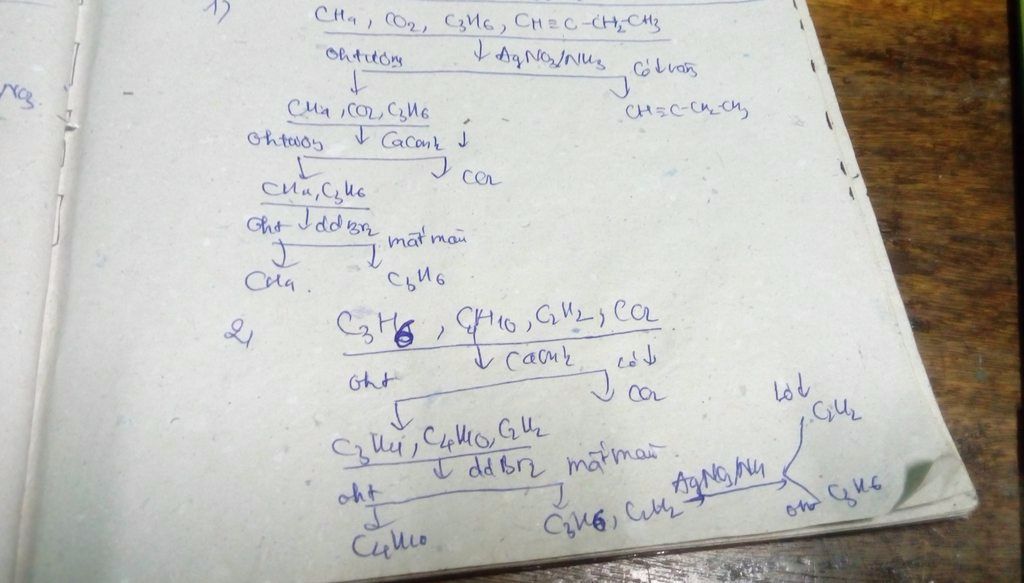 NO3.
1)
CH4, CO2, C3H6, CH≡C-CH2-CH3
↓ AgNO3/NH3
Có↓vàng
CH4, CO2, C3H6
CH≡C-CH2-CH3
↓ Ca(OH)2 ↓
CO2
CH4, C3H6
Oht ↓ddBr2 mất màu
CH4. C3H6
2,
C3H6, C4H10, C2H2, CO2
oht ↓ Ca(OH)2 có↓
CO2
C3H4, C4H10, C2H2
oht ↓ ddBr2 mất màu
C4H10 C3H6, C2H2 AgNO3/NH3
Có↓ C2H2
oht C3H6